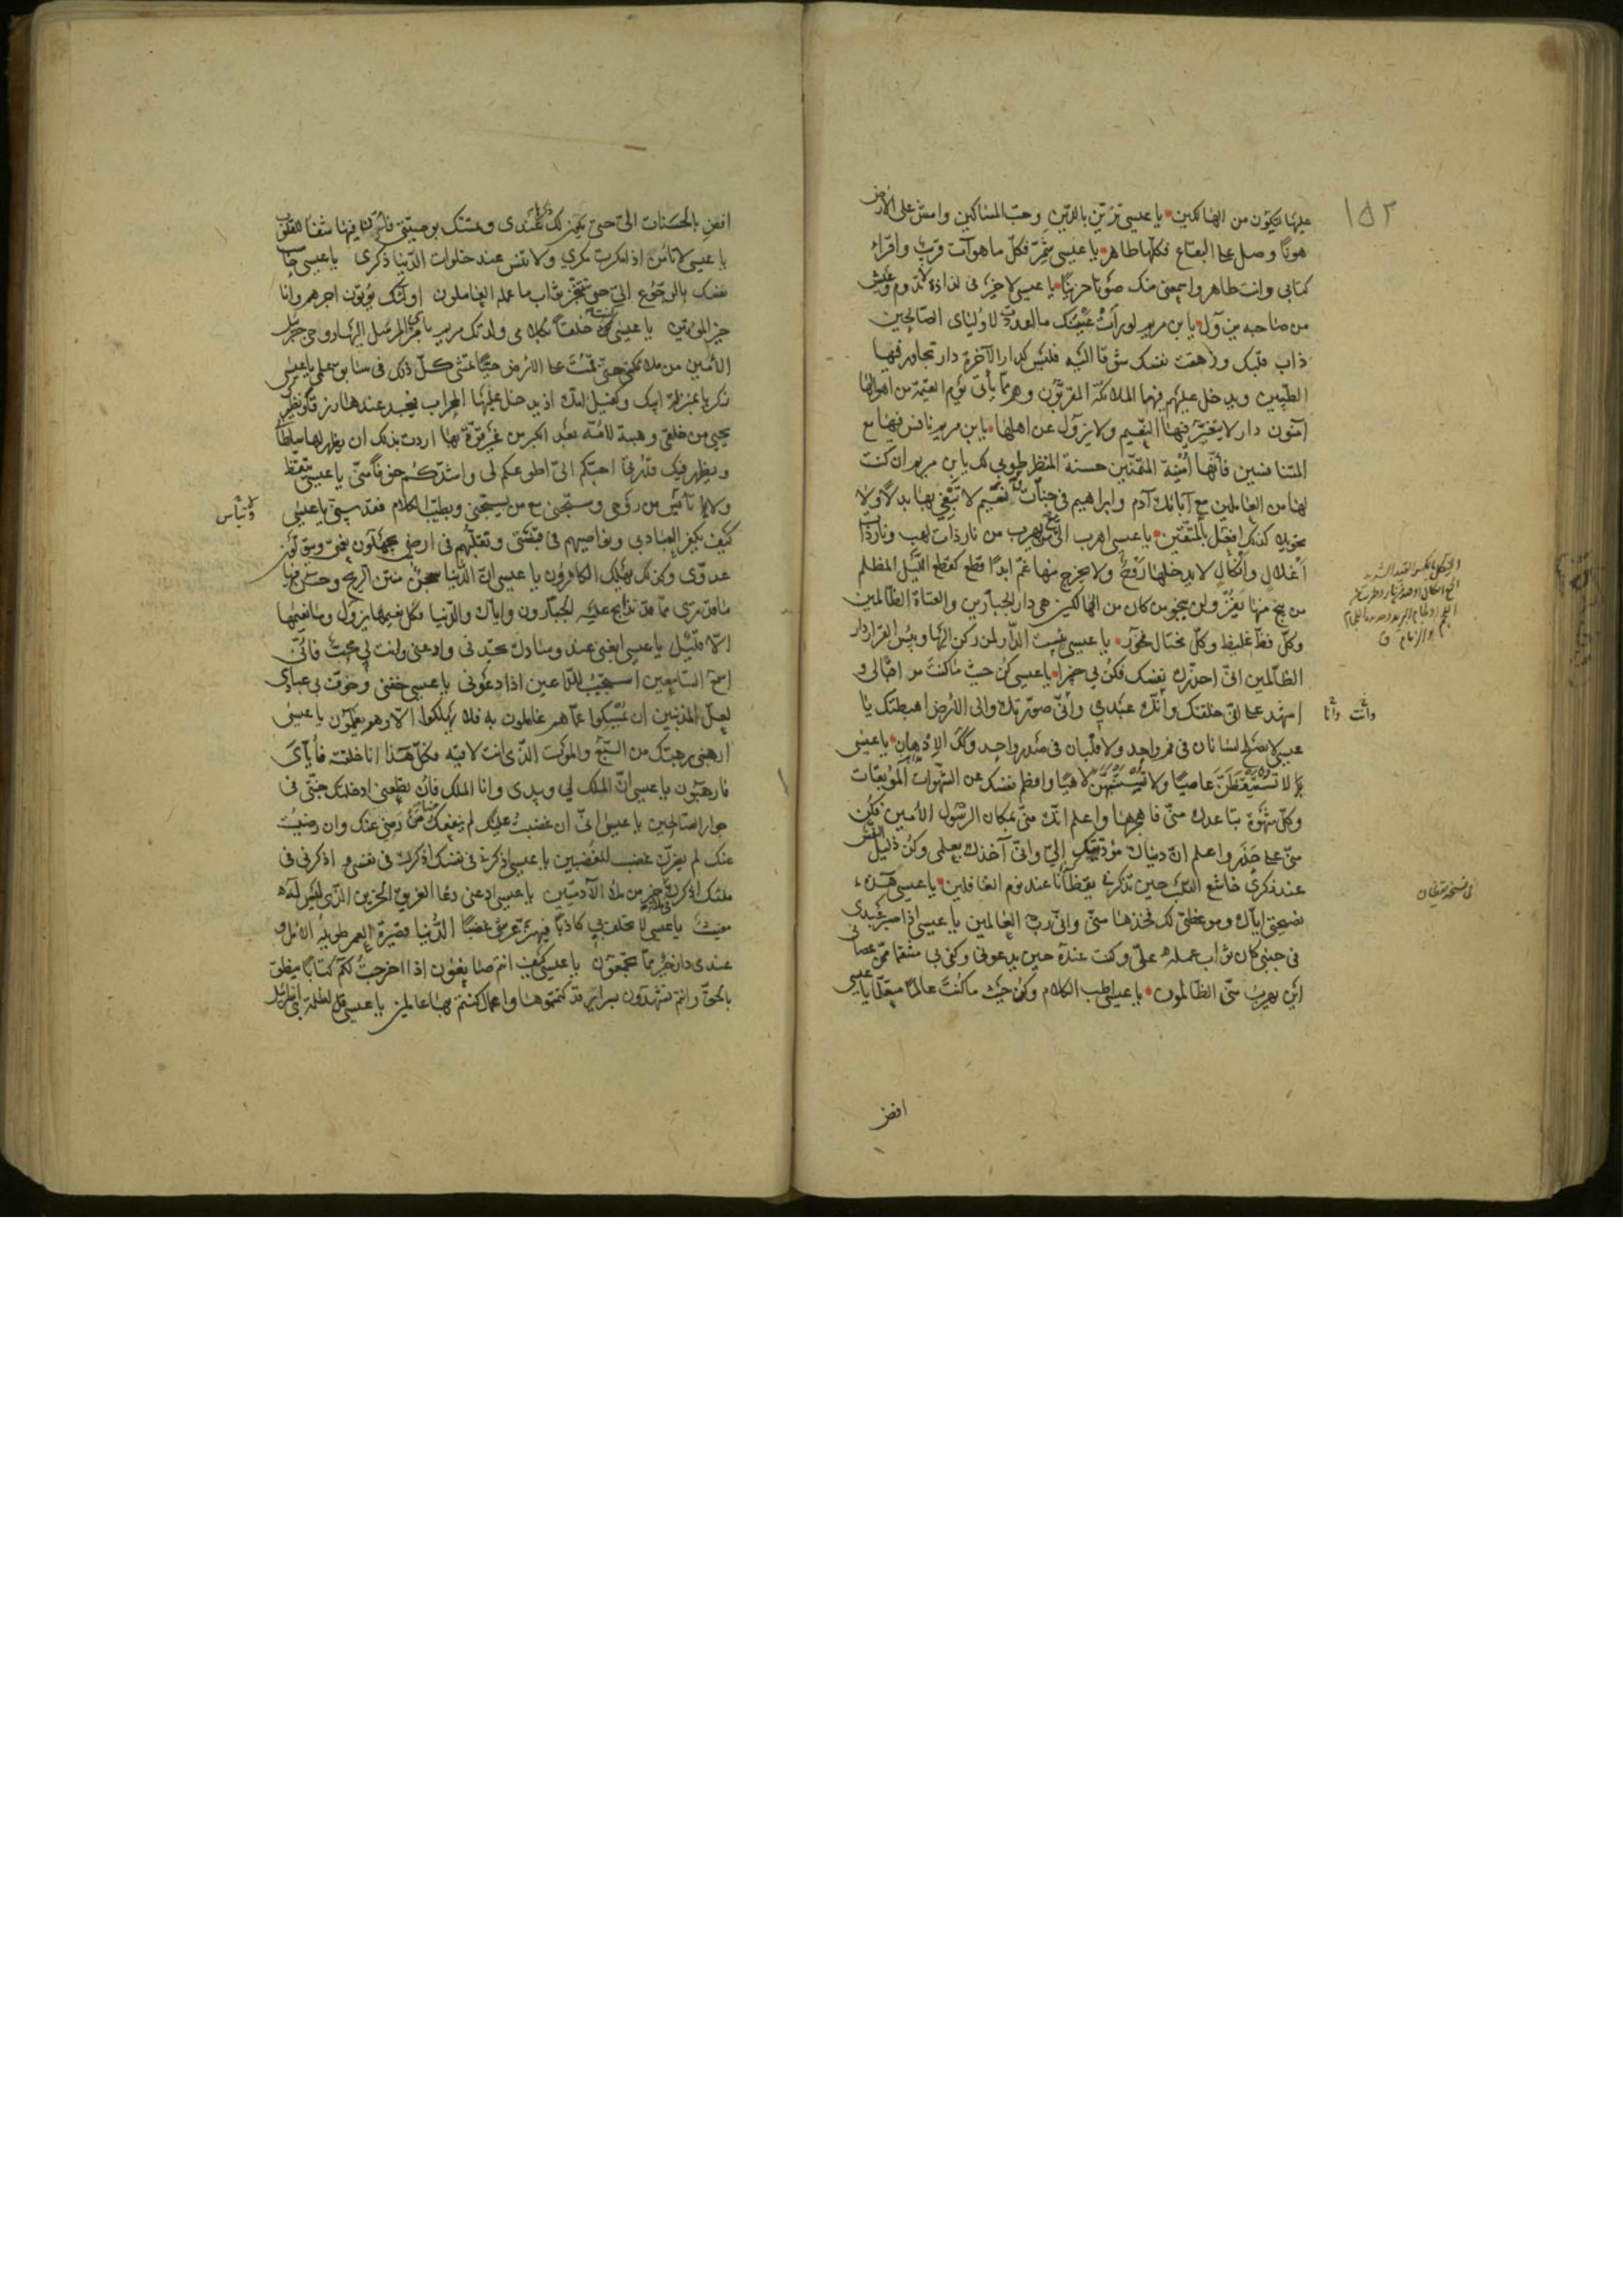 ١٥٢
عليها لتكون من الهالكين يا عيسى تزيّن بالدّين وحبّ المساكين وامش على الارض
هونا وصلّ على البقاع فكلّها طاهر يا عيسى شمّر فكلّ ما هو آت قريب واقراء
كتابي وانت طاهر واسمعني منك صوتا حزينا يا عيسى لا خير في لذاذة لا تدوم وعيش
من صاحبه يزول يا بن مريم لو رأت عينك ما اعددت لاوليائي الصالحين
ذاب قلبك وزهقت نفسك شوقا اليه فليس كدار الآخرة دار تجاور فيها
الطيبين ويدخل عليهم فيها الملائكة المقربون وهم مما يأتي يوم القيمة من اهوالها
آمنون دار لا يتغيّر فيها النعيم ولا يزول عن اهلها يا بن مريم نافس فيها مع
المتنافسين فانّها امنية المتمنّين حسنة المنظر طوبى لك يا بن مريم ان كنت
لها من العاملين مع آبائك آدم وابراهيم في جنّات ونعيم لا تبغي بها بدلا ولا
تحويلا كذلك افعل بالمتقين يا عيسى اهرب اليّ مع من يهرب من نار ذات لهب ونار ذات
اغلال وانكال لا يدخلها روح ولا يخرج منها غم ابدا قطع كقطع الليل المظلم
من ينج منها يفز ولن ينجو من كان من الهالكين هي دار الجبارين والعتاة الظالمين
وكلّ فظّ غليظ وكلّ مختال فخور يا عيسى بئست الدّار لمن ركن اليها وبئس القرار دار
الظالمين انّي احذّرك نفسك فكن بي خبيرا يا عيسى كن حيث ما كنت مراقبا لي و
اشهد على انّي خلقتك وانّك عبدي وانّي صوّرتك والى الارض اهبطتك يا
عيسى لا يصلح لسانان في فم واحد ولا قلبان في صدر واحد وكذلك الاذهان يا عيسى
لا تستيقظنّ عاصيا ولا تستنبهنّ لاهيا وافطم نفسك عن الشهوات الموبقات
وكلّ شهوة تباعدك منّي فاهجرها واعلم انّك منّي بمكان الرسول الامين فكن
منّي على حذر واعلم انّ دنياك مؤدّيتك اليّ وانّي آخذك بعلمي وكن ذليل النفس
عند ذكري خاشع القلب حين تذكرني يقظانا عند نوم الغافلين يا عيسى هذه
نصيحتي ايّاك وموعظتي لك فخذها منّي وانّي ربّ العالمين يا عيسى اذا صبر عبدي
في جنبي كان ثواب عمله عليّ وكنت عنده حين يدعوني وكفى بي منتقما ممّن عصاني
اين يهرب منّي الظالمون يا عيسى اطب الكلام وكن حيث ما كنت عالما متعلّما يا عيسى
افض
افض بالحسنات اليّ حتى يكون لك ذكرها عندي وتمسّك بوصيّتي فانّ فيها شفاء للقلوب
يا عيسى لا تأمن اذا مكرت مكري ولا تنس عند خلوات الدّنيا ذكري يا عيسى حاسب
نفسك بالرجوع اليّ حتى تتنجز ثواب ما عمله العاملون اولئك يؤتون اجرهم وانا
خير المؤتين يا عيسى كنت خلقا بكلامي ولدتك مريم بامري المرسل اليها روحي جبرئيل
الامين من ملائكتي حتى قمت على الارض حيّا تمشي كلّ ذلك في سابق علمي يا عيسى
زكريا بمنزلة ابيك وكفيل امّك اذ يدخل عليها المحراب فيجد عندها رزقا ونظيرك
يحيى من خلقي وهبته لامّه بعد الكبر من غير قوّة بها اردت بذلك ان يظهر لها سلطاني
ويظهر فيك قدرتي احبّكم اليّ اطوعكم لي واشدّكم خوفا منّي يا عيسى تيقّظ
ولا تيأس من روحي وسبّحني مع من يسبّحني وبطيّب الكلام فقدّسني يا عيسى
كيف يكفر العباد بي ونواصيهم في قبضتي وتقلّبهم في ارضي يجهلون نعمتي ويتولّون
عدوّي وكذلك يهلك الكافرون يا عيسى انّ الدّنيا سجن منتن الريح وحسن فيها
ما قد ترى ممّا قد تذابح عليه الجبارون وايّاك والدّنيا فكلّ نعيمها يزول وما نعيمها
الّا قليل يا عيسى ابغني عند وسادك تجدني وادعني وانت لي محبّ فانّي
اسمع السامعين استجيب للداعين اذا دعوني يا عيسى خفني وخوّف بي عبادي
لعلّ المذنبين ان يمسكوا عمّا هم عاملون به فلا يهلكوا الّا وهم يعلمون يا عيسى
ارهبني رهبتك من السبع والموت الذي انت لاقيه فكلّ هذا انا خلقته فايّاي
فارهبون يا عيسى انّ الملك لي وبيدي وانا الملك فان تطعني ادخلتك جنّتي في
جوار الصالحين يا عيسى انّي ان غضبت عليك لم ينفعك رضى من رضي عنك وان رضيت
عنك لم يضرّك غضب المغضبين يا عيسى اذكرني في نفسك اذكرك في نفسي واذكرني في
ملئك اذكرك في ملاء خير من ملاء الآدميين يا عيسى ادعني دعاء الغريق الحزين الذي ليس له
مغيث يا عيسى لا تحلف بي كاذبا فيهتزّ عرشي غضبا الدّنيا قصيرة العمر طويلة الامل و
عندي دار خير ممّا تجمعون يا عيسى كيف انتم صانعون اذا اخرجت لكم كتابا ينطق
بالحقّ وانتم تشهدون بسرائر قد كتمتموها واعمال كنتم بها عاملين يا عيسى قل لظلمة بني اسرائيل